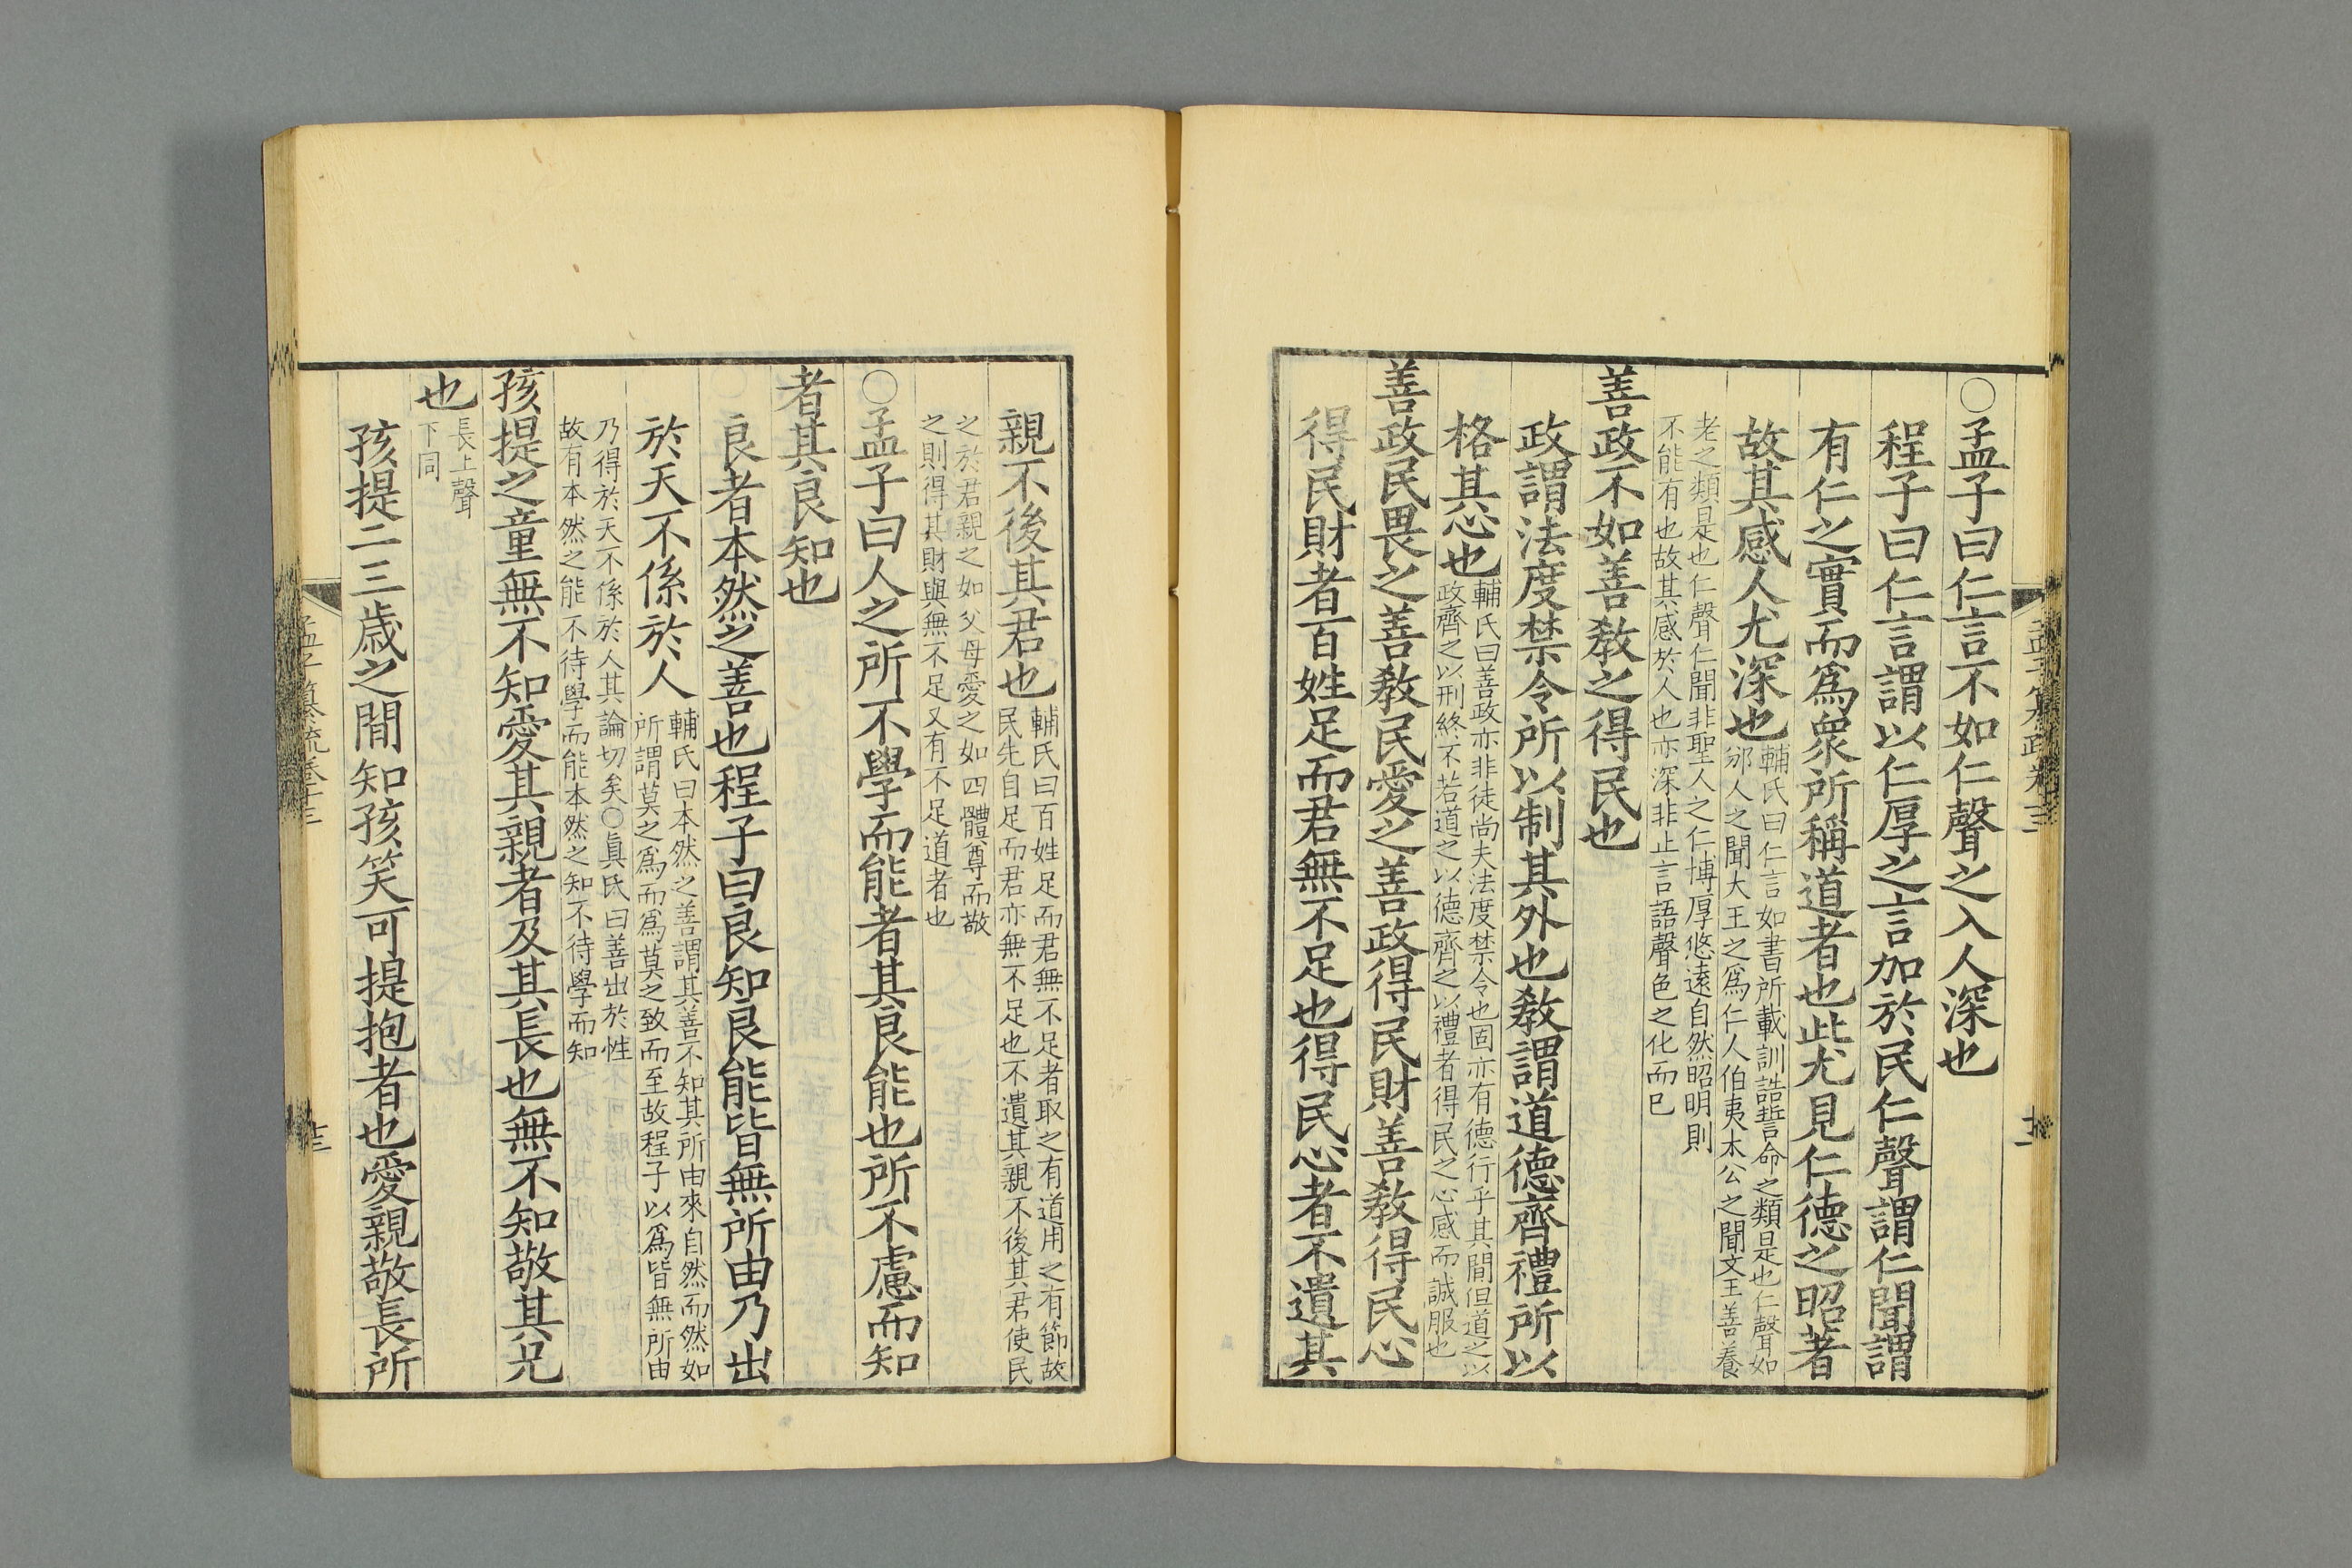 ○孟子曰仁言不如仁聲之入人深也
程子曰仁言謂以仁厚之言加於民仁聲謂仁聞謂
有仁之實而爲衆所稱道者也此尤見仁德之昭著
故其感人尤深也
輔氏曰仁言如書所載訓誥誓命之類是也仁聲如
邠人之聞大王之爲仁人伯夷太公之聞文王善養
老之類是也仁聲仁聞非聖人之仁博厚悠遠自然昭明則
不能有也故其感於人也亦深非止言語聲色之化而已
善政不如善教之得民也
政謂法度禁令所以制其外也教謂道德齊禮所以
格其心也
輔氏曰善政亦非徒尚夫法度禁令也固亦有德行乎其間但道之以
政齊之以刑終不若道之以德齊之以禮者得民之心感而誠服也
善政民畏之善教民愛之善政得民財善教得民心
得民財者百姓足而君無不足也得民心者不遺其
親不後其君也
輔氏曰百姓足而君無不足者取之有道用之有節故
民先自足而君亦無不足也不遺其親不後其君使民
之於君親之如父母愛之如四體尊而敬
之則得其財與無不足又有不足道者也
○孟子曰人之所不學而能者其良能也所不慮而知
者其良知也
良者本然之善也程子曰良知良能皆無所由乃出
於天不係於人
輔氏曰本然之善謂其善不知其所由來自然而然如
所謂莫之爲而爲莫之致而至故程子以爲皆無所由
乃得於天不係於人其論切矣○眞氏曰善出於性
故有本然之能不待學而能本然之知不待學而知
孩提之童無不知愛其親者及其長也無不知敬其兄
也
長上聲
下同
孩提二三歲之間知孩笑可提抱者也愛親敬長所
孟子纂疏卷十三
十三